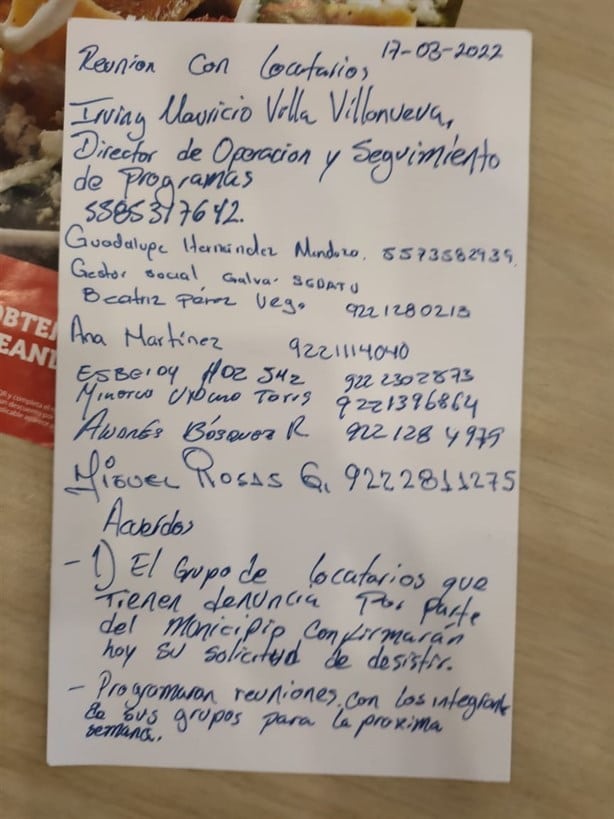 17-03-2022
Reunion con locatarios
Irving Mauricio Villa Villanueva,
Director de Operacion y Seguimiento
de Programas
5585317642.
Guadalupe Hernández Mendoza. 5573582939.
Gestor social SEDATU
Beatriz Pérez Vega 9221280213
Ana Martínez 9221114040
922 2302873
Torres 9221396864
Bósquez R 922 128 4979
Miguel Rosas G. 9222811275
Acuerdos
- 1) El Grupo de locatarios que
tienen denuncia por parte
del Municipio confirmarán
hoy su solicitud de desistir.
- Programaran reuniones con los integrante
de sus grupos para la proxima
semana.
OBTE
EAND